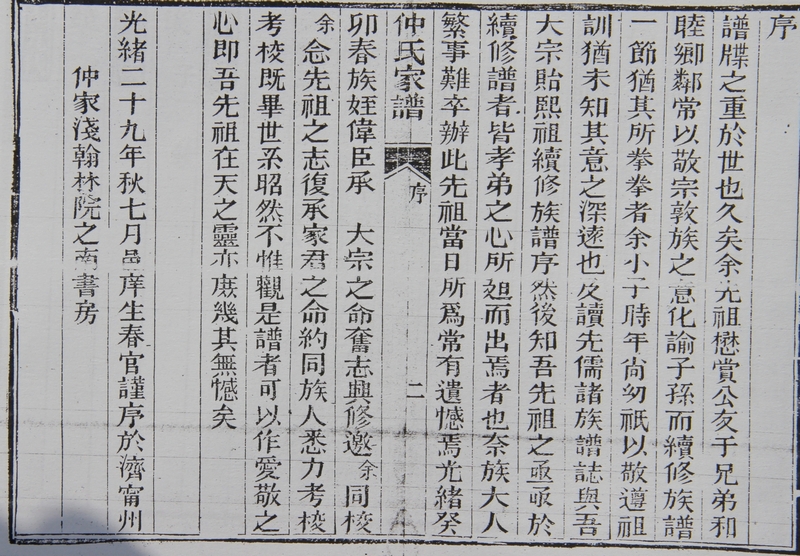 序
譜牒之重於世也久矣余先祖懋賞公友于兄弟和
睦鄉鄰常以敬宗敦族之意化諭子孫而續修族譜
一節猶其所拳拳者余小子時年尙幼祇以敬遵祖
訓猶未知其意之深遠也及讀先儒諸族譜誌與吾
大宗貽熙祖續修族譜序然後知吾先祖之亟亟於
續修譜者皆孝弟之心所廹而出焉者也奈族大人
繁事難卒辦此先祖當日所爲常有遺憾焉光緒癸
仲氏家譜 序 二
卯春族姪偉臣承 大宗之命奮志興修邀余同校
余念先祖之志復承家君之命約同族人悉力考校
考校既畢世系昭然不惟觀是譜者可以作愛敬之
心即吾先祖在天之靈亦庶幾其無憾矣
光緒二十九年秋七月邑庠生春官謹序於濟甯州
仲家淺翰林院之南書房